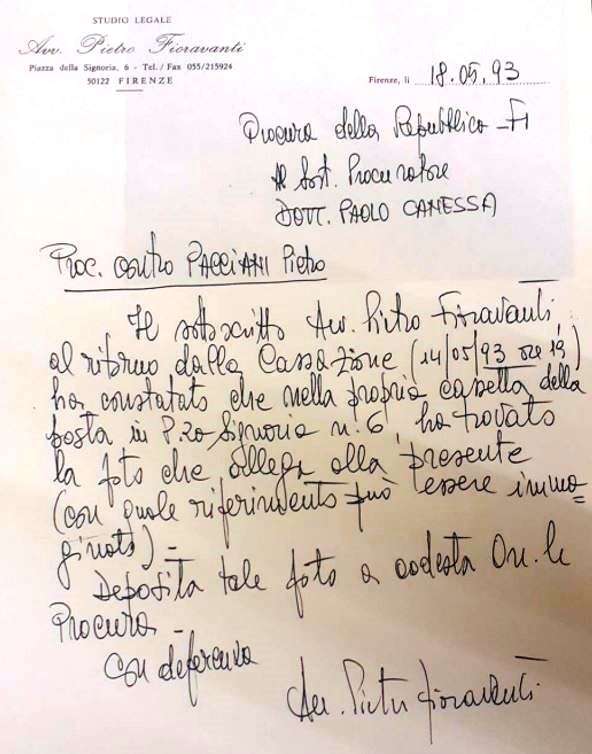 STUDIO LEGALE
Avv. Pietro Fioravanti
Piazza della Signoria, 6 - Tel. / Fax 055/215924
50122 FIRENZE
Firenze, lì 18.05.93
Procura della Repubblica - FI
Al Sost. Procuratore
DOTT. PAOLO CANESSA
Proc. contro PACCIANI Pietro
Il sottoscritto Avv. Pietro Fioravanti,
al ritorno dalla Cassazione (14/05/93 ore 19)
ha constatato che nella propria casella della
posta in P.za Signoria n. 6, ha trovato
la foto che allega alla presente
(con quale riferimento può essere imma=
ginato) -
Deposita tale foto a codesta On.le
Procura -
Con deferenza
Avv. Pietro Fioravanti